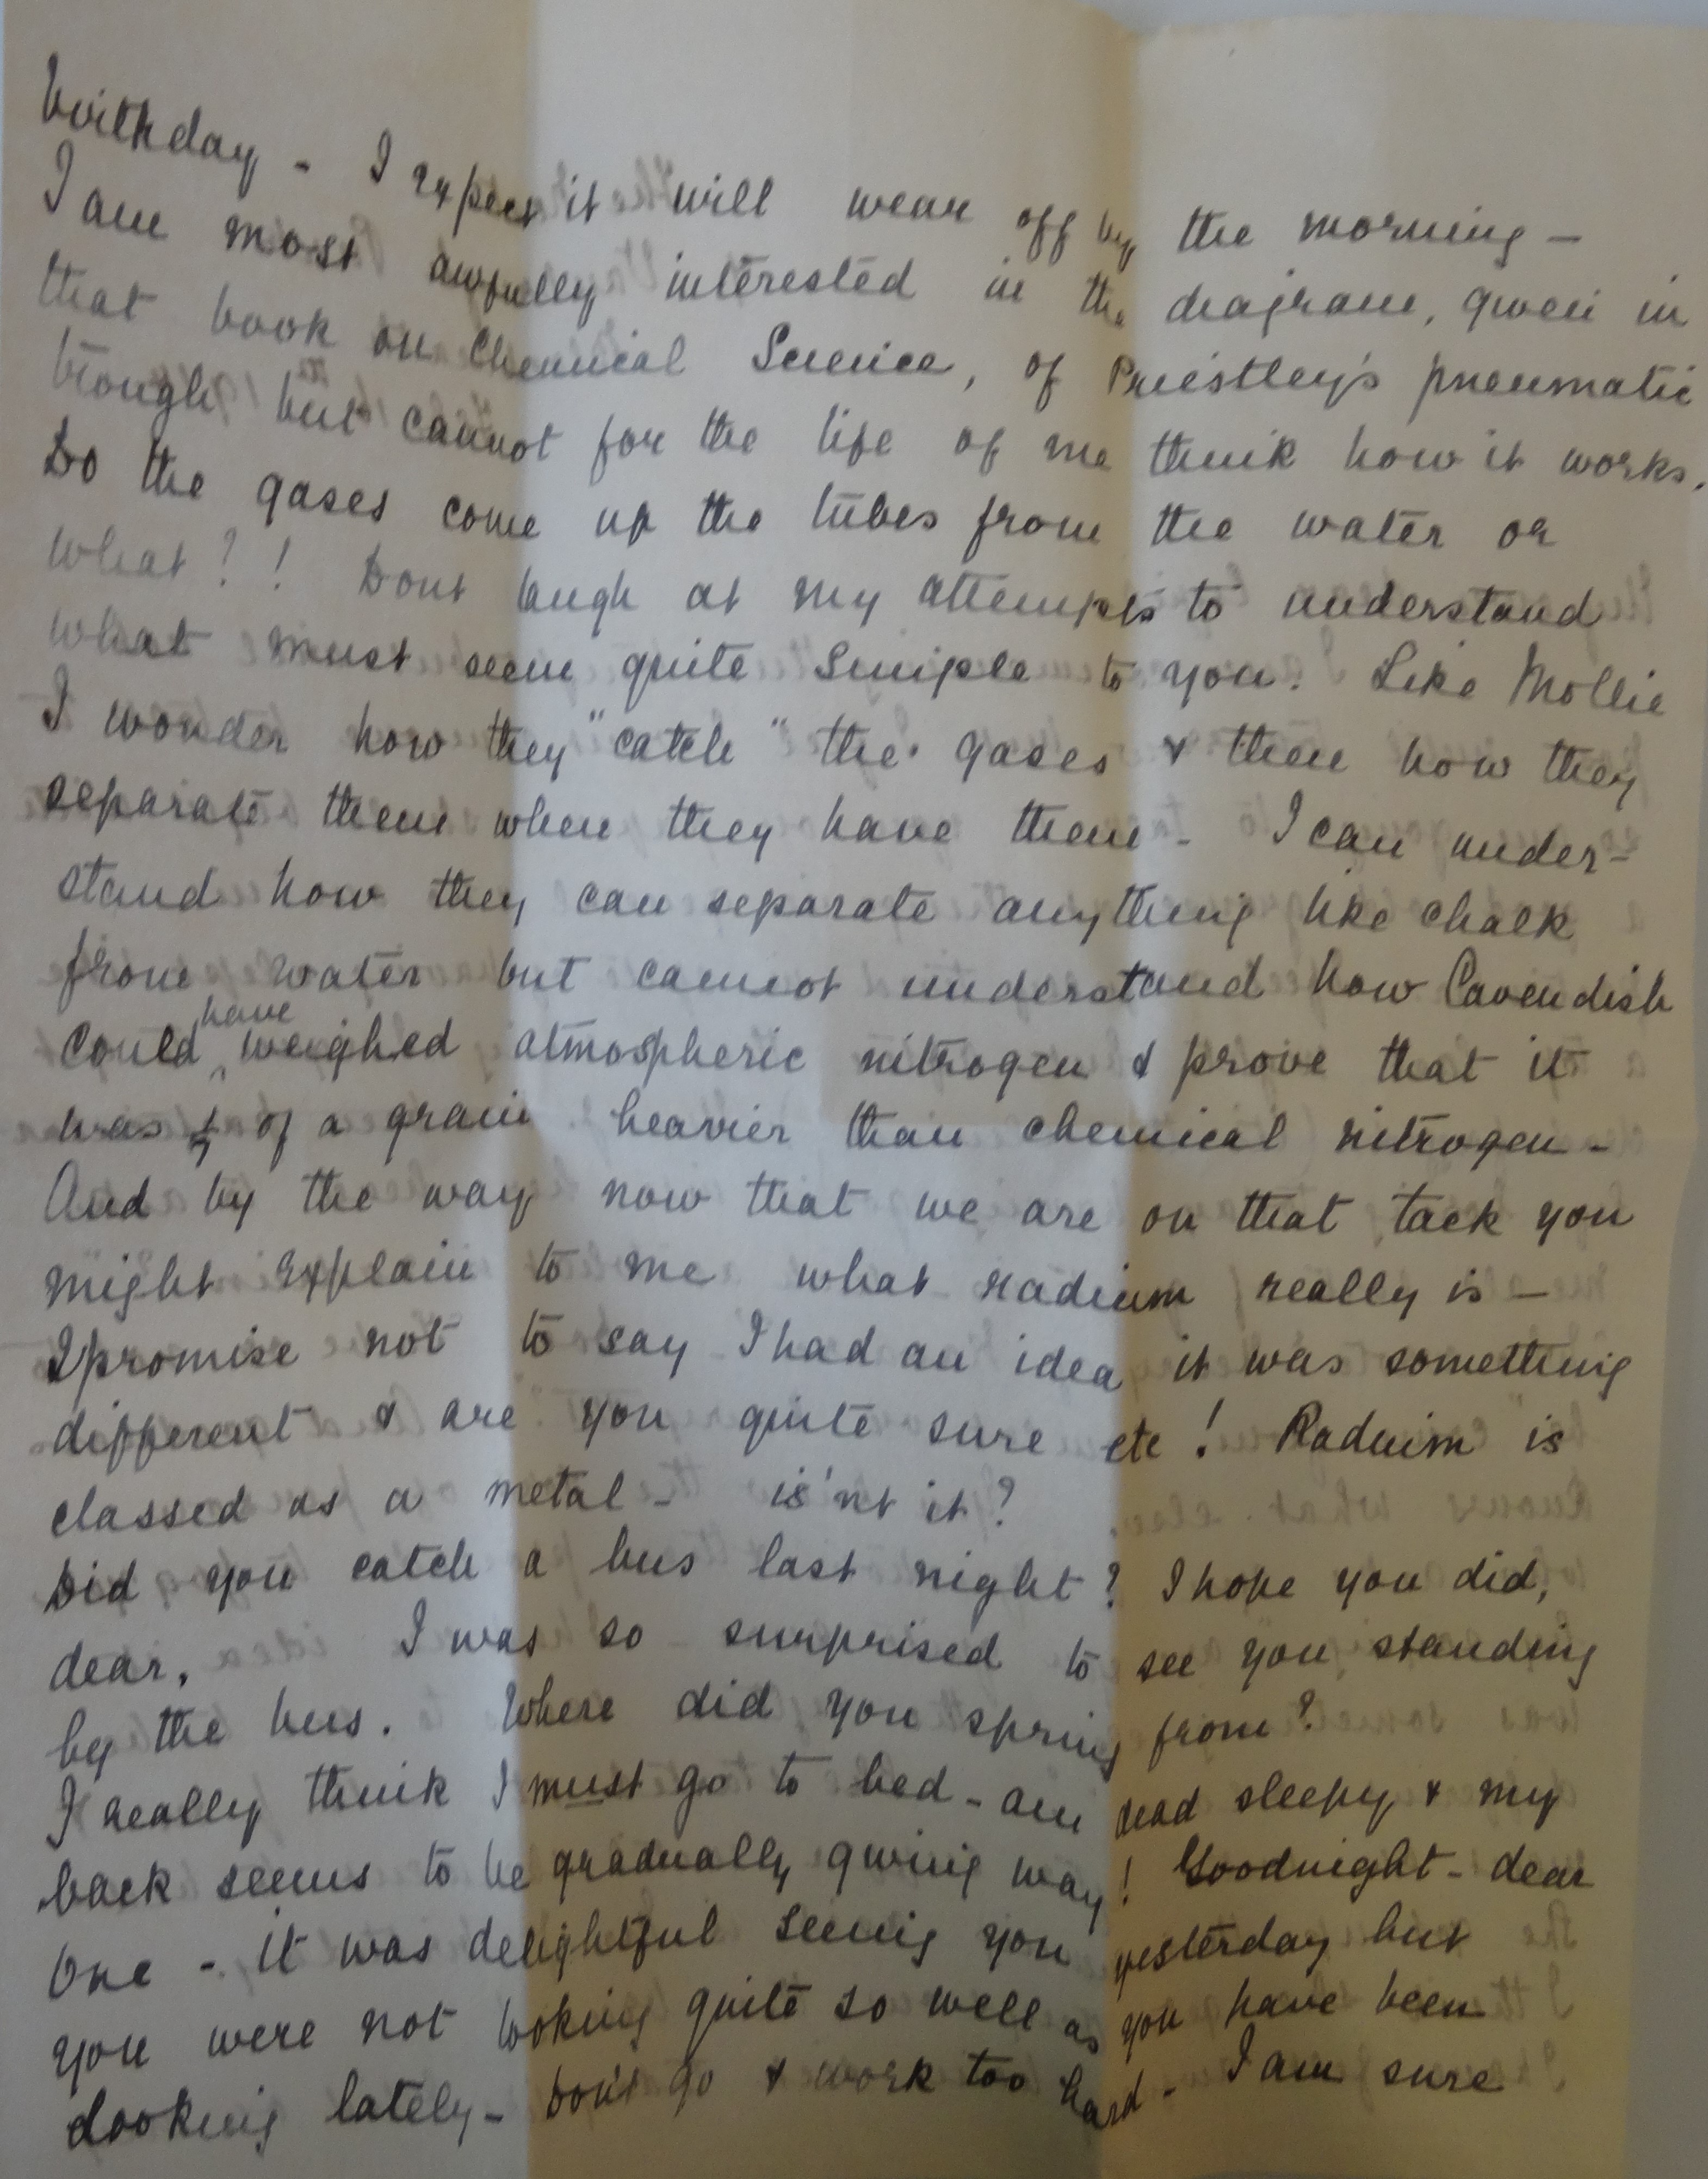 birthday - I expect it will wear off by the morning -
I am most awfully interested in the diagram, given in
that book on Chemical Science, of Priestley's pneumatic
trough but cannot for the life of me think how it works.
Do the gases come up the tubes from the water or
what?! Dont laugh at my attempts to understand
what must seem quite simple to you. Like Mollie
I wonder how they "catch" the gases & then how they
separate them when they have them - I can under-
stand how they can separate anything like chalk
from water but cannot understand how Cavendish
could have weighed atmospheric nitrogen & prove that it
was 1/7 of a grain heavier than chemical nitrogen -
And by the way now that we are on that tack you
might explain to me what radium really is -
I promise not to say I had an idea it was something
different & are you quite sure etc! Radium is
classed as a metal - is'nt it?
Did you catch a bus last night? I hope you did,
dear. I was so surprised to see you standing
by the bus. Where did you spring from?
I really think I must go to bed - am dead sleepy & my
back seems to be gradually giving way! Goodnight - dear
one - it was delightful seeing you yesterday but
you were not looking quite so well as you have been
looking lately - Don't go & work too hard - I am sure